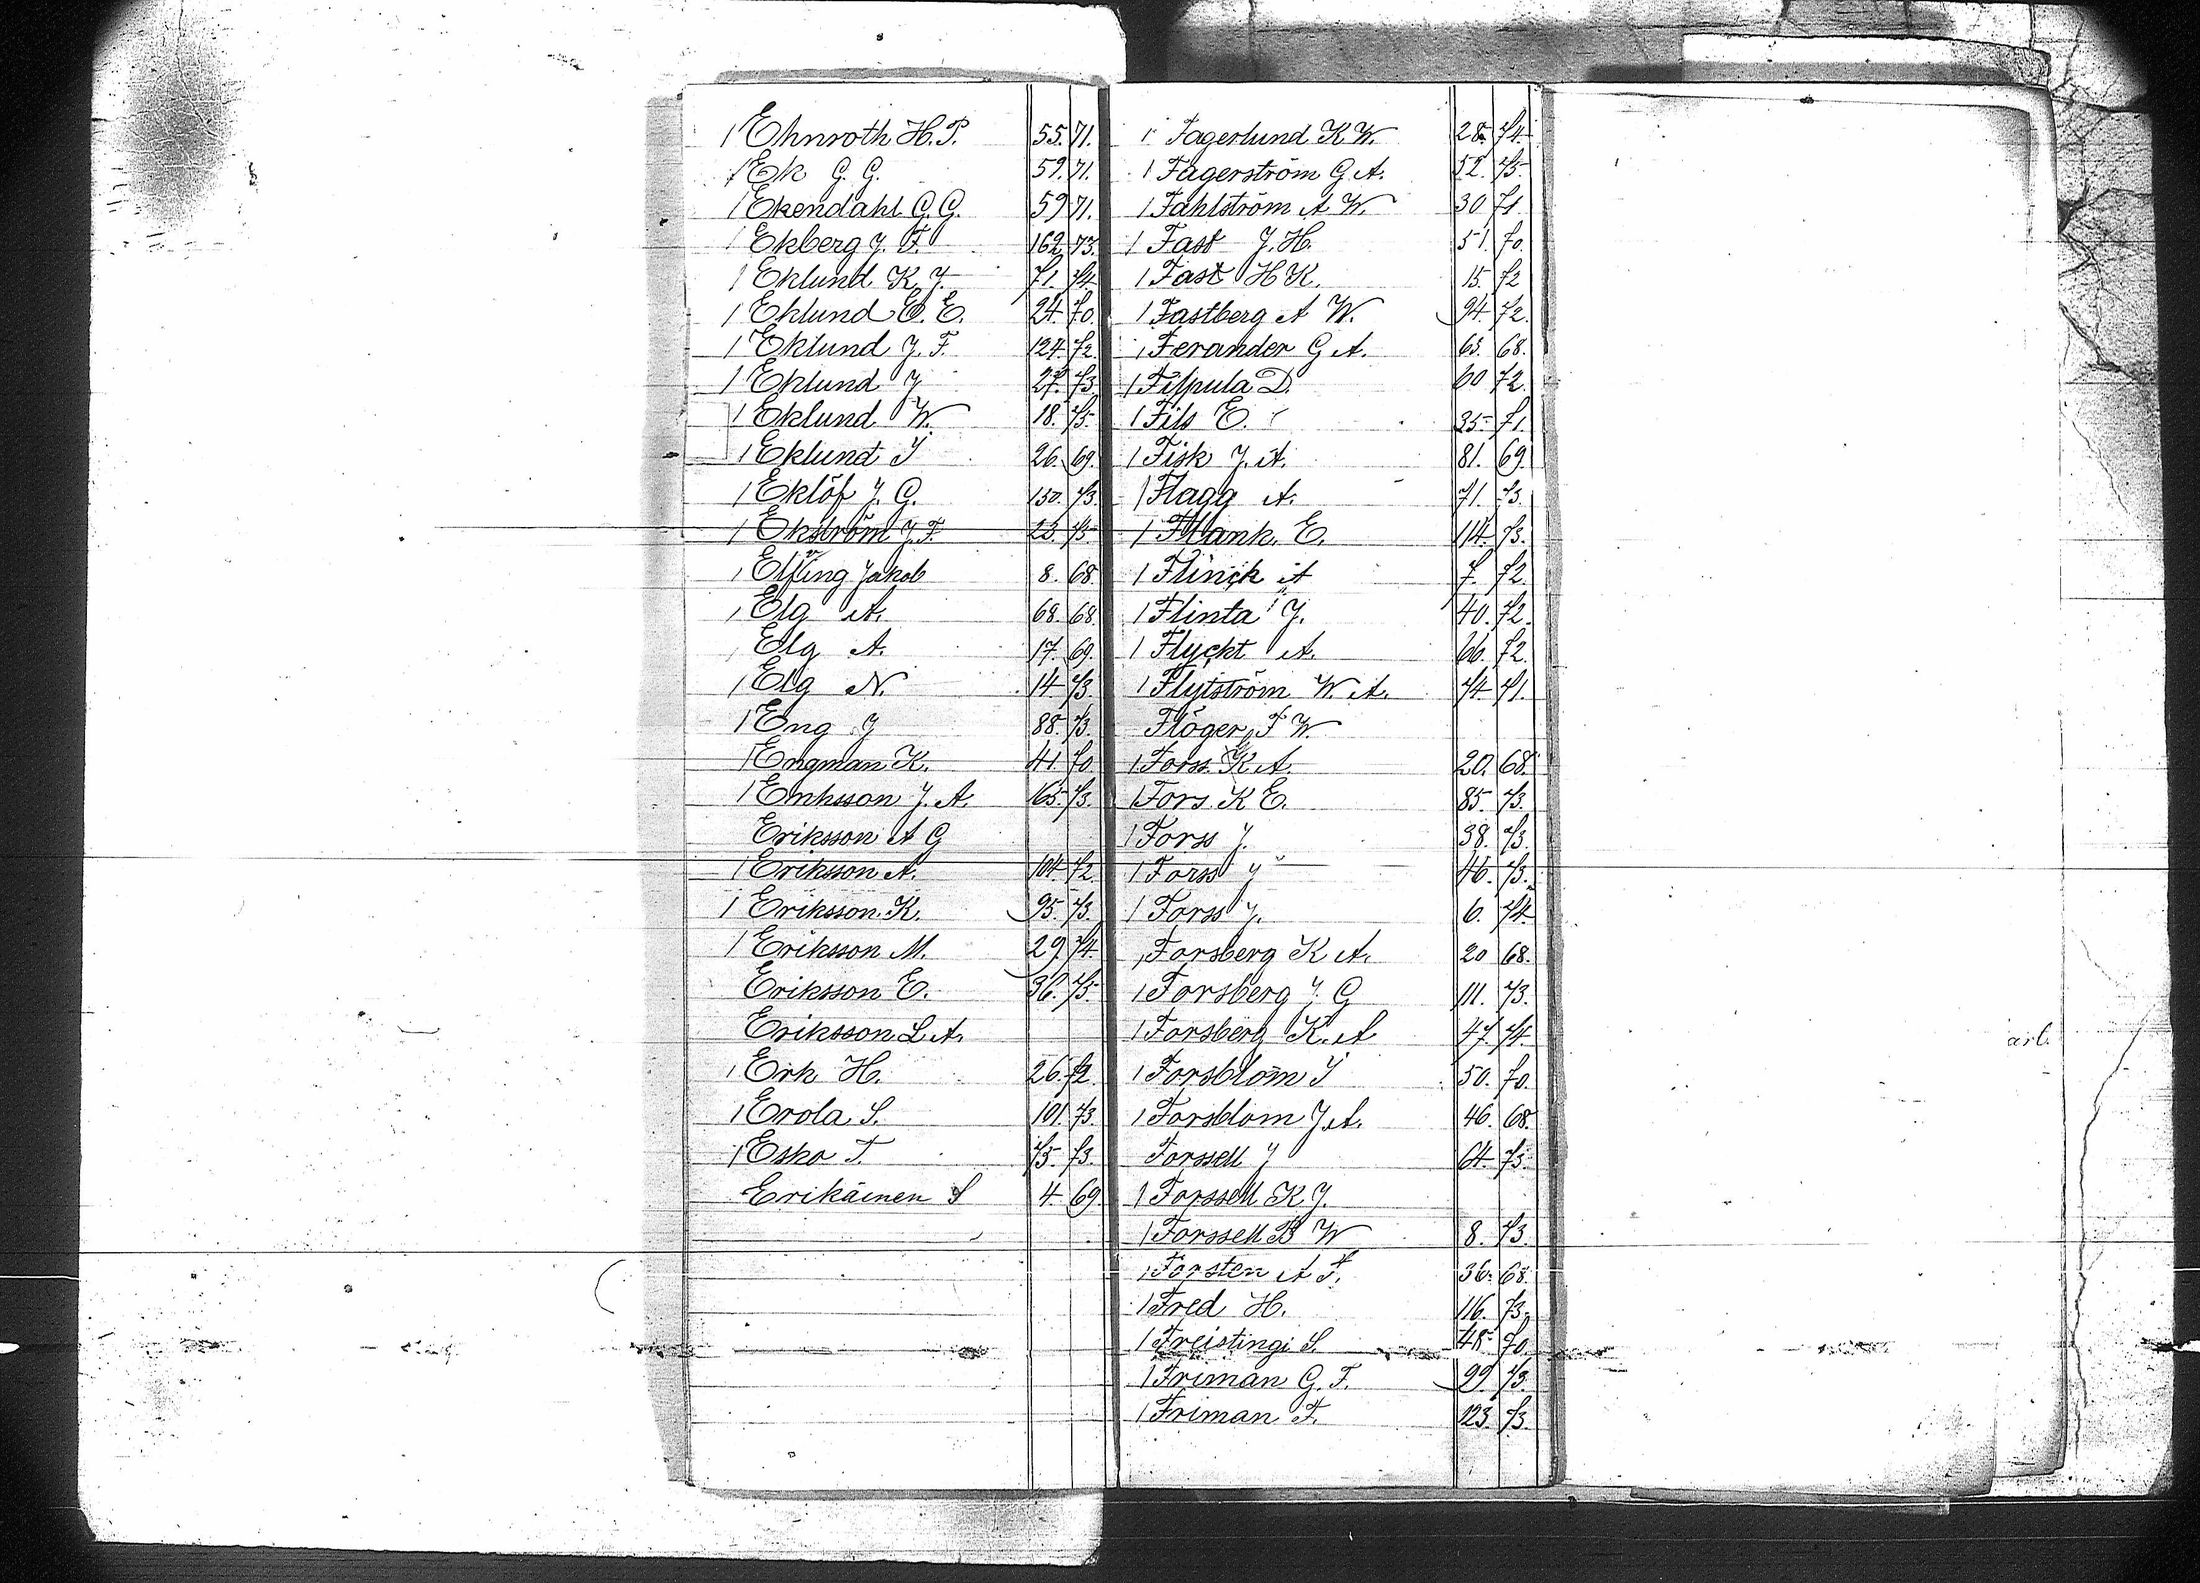 1 Ehnroth H. P. 55. 71.
1 Ek G. G. 59. 71.
1 Ekendahl G. G. 59 71.
1 Ekberg J. F. 162 73.
1 Eklund K. J. 71. 74
1 Eklund E. E. 24. 70.
1 Eklund J. F. 124. 72.
1 Eklund J 27. 73
1 Eklund W. 18. 75.
1 Eklund J 26. 69.
1 Eklöf J. G. 130. 73.
1 Ekström J. F. 23. 75.
1 Elfving Jakob 8. 68.
1 Elg A. 68. 68.
1 Elg A. 17. 69.
1 Elg N. 14. 73.
1 Eng J 88. 73.
1 Engman K. 41. 70
1 Eriksson J. A. 165. 73.
Eriksson A G
1 Eriksson A. 104. 72.
1 Eriksson K. 95. 73.
1 Eriksson M. 29 74.
Eriksson E. 36. 75.
Eriksson L. A.
1 Erk H. 26. 72.
1 Erola S. 101. 73.
1 Esko T. 75. 73.
Erikäinen S 4. 69
1 Fagerlund K. W. 28. 74.
1 Fagerström G A. 52. 75.
1 Fahlström A W. 30 71
1 Fast J. H. 51. 70.
1 Fast H K. 15. 72
1 Fastberg A W. 94. 72.
1 Ferander G A. 63. 68.
1 Filpula D. 60 72.
1 Fils E. 35. 71.
1 Fisk J. A. 81. 69.
1 Flagg A. 71. 73.
1 Flank. E. 114. 73.
1 Flinck A 7. 72.
1 Flinta J. 40. 72.
1 Flyckt A. 66. 72.
1 Flytström W. A. 74. 71.
Flöger F W
1 Forss. K A. 20. 68.
1 Fors. K E. 85. 73.
1 Forss J. 38. 73.
1 Forss J 46. 73.
1 Forss J. 6. 74.
1 Forsberg K A. 20 68.
1 Forsberg J. G 111. 73.
1 Forsberg K. A 47. 74.
1 Forsblom J 50. 70.
1 Forsblom J. A. 46. 68.
Forssell J 64. 75.
1 Forssell K J.
1 Forssell B W 8. 73.
1 Forsten A F. 36. 68.
1 Fred H. 116. 73.
1 Freistingi S. 48. 70.
1 Friman G. F. 99. 73.
1 Friman F. 123. 73.
arl.